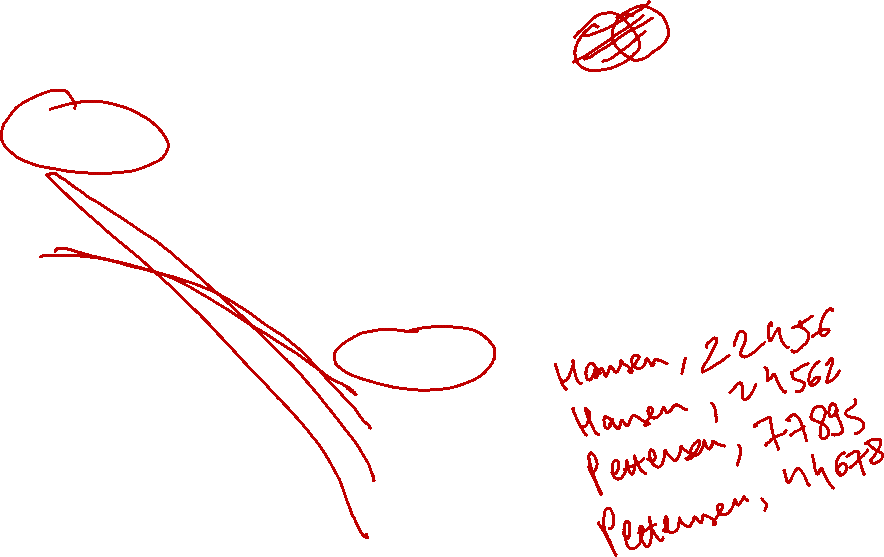 Hansen, 22456
Hansen, 24562
Pettersen, 77895
Pettersen, 44678